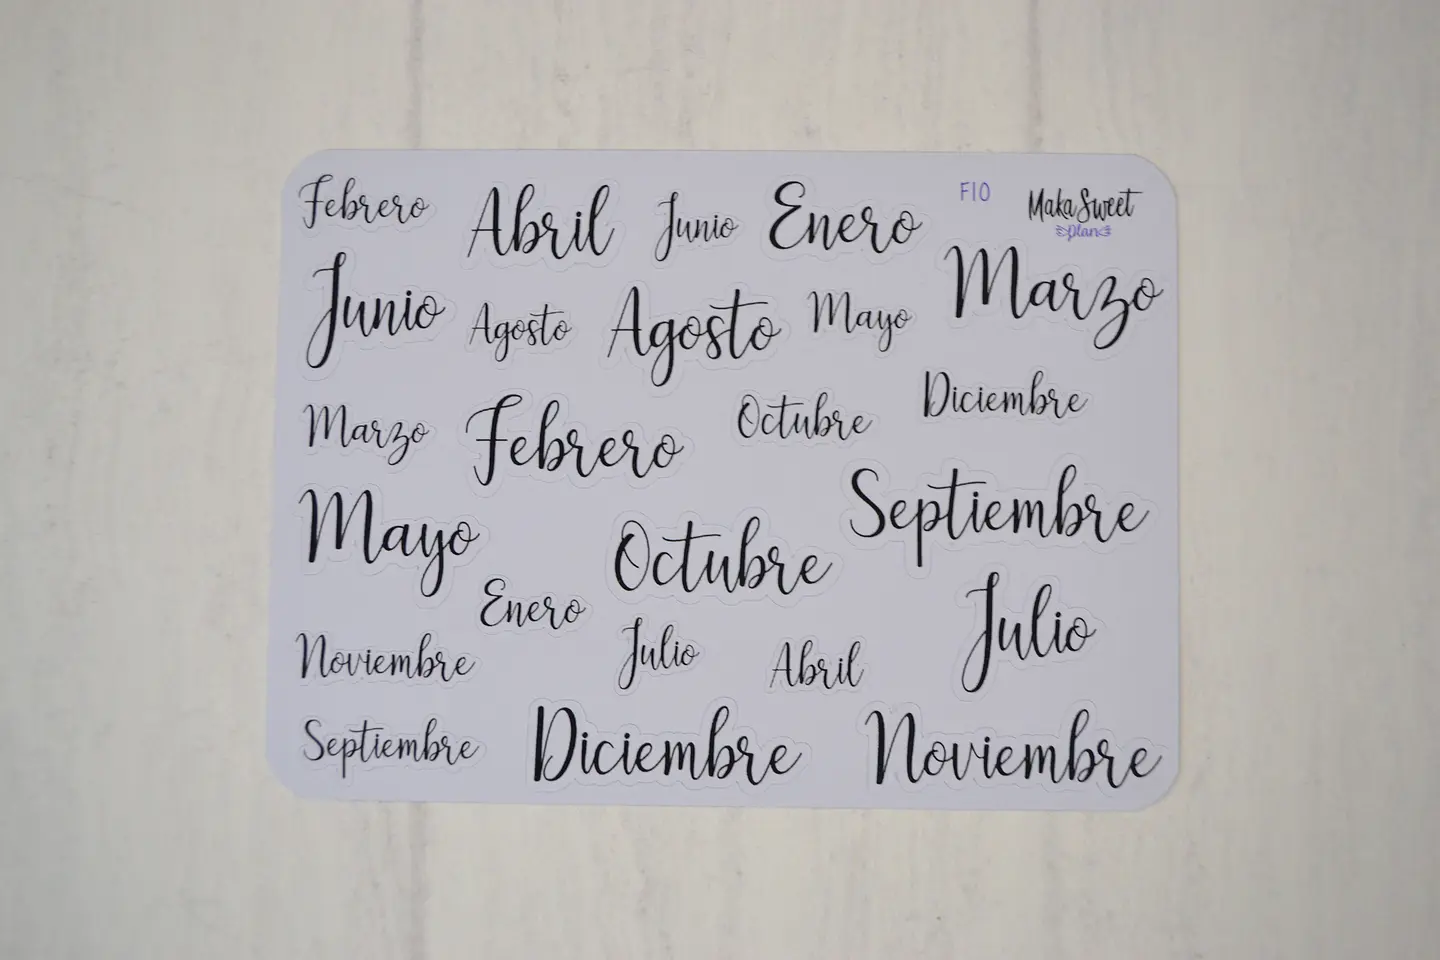 Febrero Abril Junio Enero F10 Maka Sweet
plan
Junio Agosto Agosto Mayo Marzo
Marzo Febrero Octubre Diciembre
Mayo Octubre Septiembre
Enero Julio
Noviembre Julio Abril
Septiembre Diciembre Noviembre